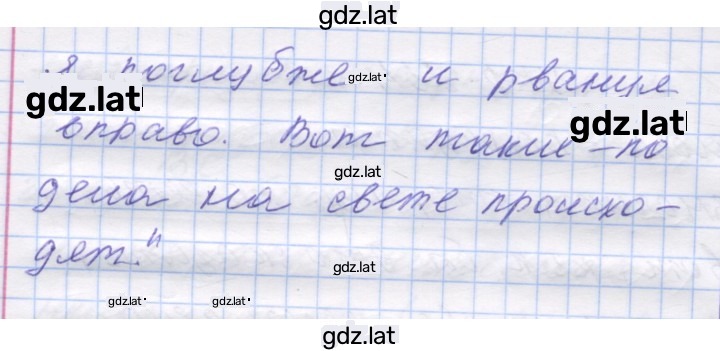 gdz.lat
я поглубже gdz.lat и рванule
gdz.lat
вправо. Вот такие-то gdz.lat
gdz.lat
дела на свете происхо-
дят."
gdz.lat
gdz.lat gdz.lat
gdz.lat